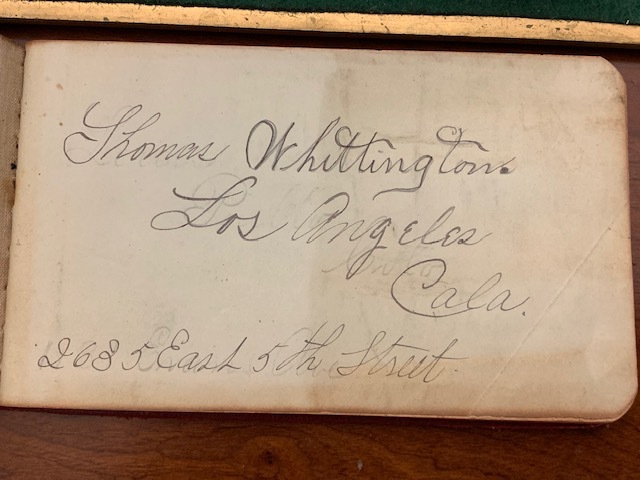 Thomas Whittington.
Los Angeles
Cala.
2685 East 5th Street